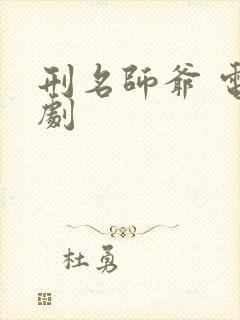 刑名師爺 電
劇
杜勇